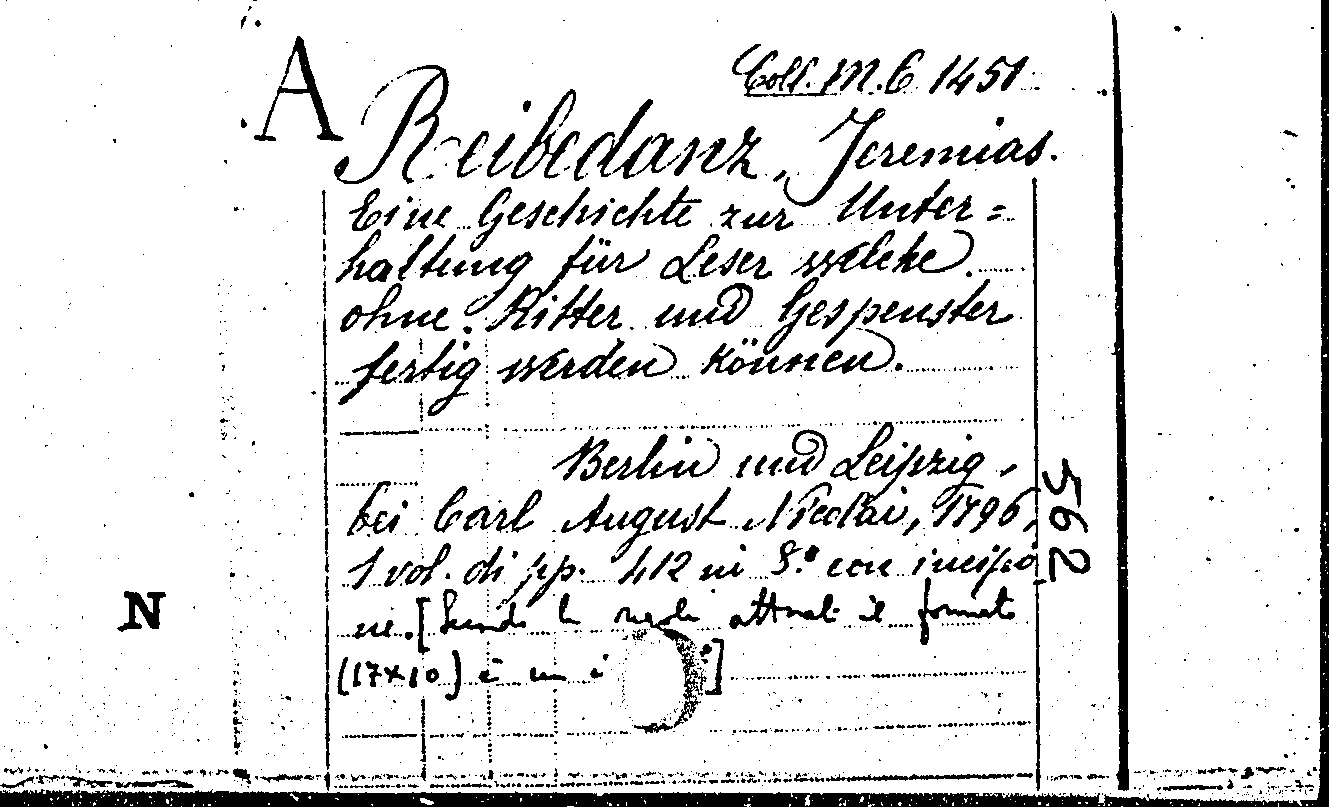 A
Coll. M. E 1451
Reibedanz, Jeremias.
Eine Geschichte zur Unter=
haltung für Leser welche
ohne Ritter und Gespenster
fertig werden können.
Berlin und Leipzig,
bei Carl August Nicolai, 1796,
1 vol. di pp. 412 in 8.° con incisio
ne. [Secondo le regole attuali il formato
(17x10) è un i
562
N